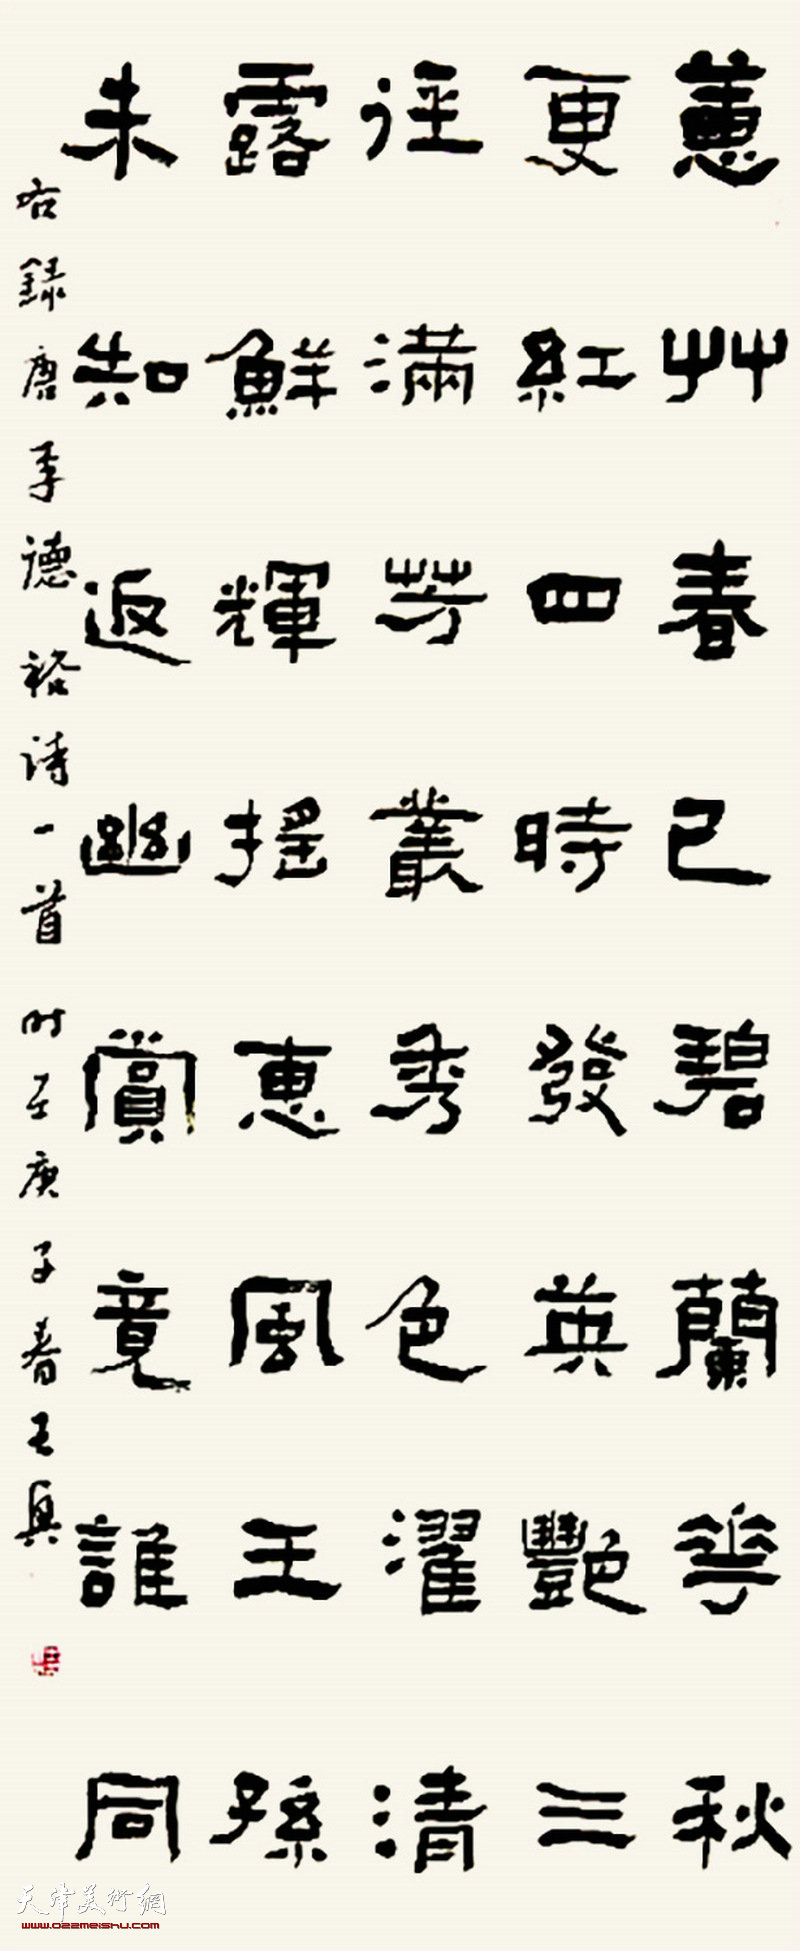 蕙艸春已碧蘭花秋
更紅四時發英艷三
徑滿芳叢秀色濯清
露鮮輝摇惠風王孫
未知返幽賞竟誰同
右録唐李德裕诗一首 时在庚子春王兴
天津美術網
www.022meishu.com